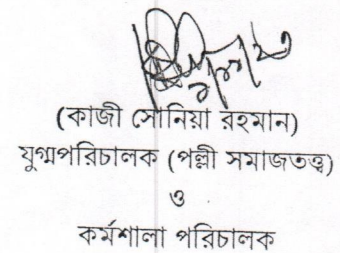 (কাজী সোনিয়া রহমান)
যুগ্মপরিচালক (পল্লী সমাজতত্ত্ব)
ও
কর্মশালা পরিচালক